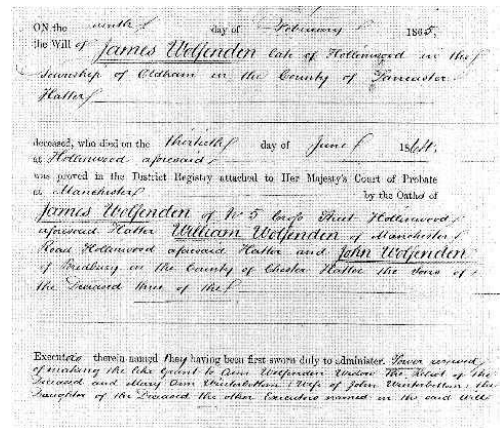 ON the ninth day of February 1865.
the Will of James Wolfenden late of Hollinwood in the
Township of Oldham in the County of Lancaster
Hatter
deceased, who died on the thirtieth day of June 1864.
at Hollinwood aforesaid
was proved in the District Registry attached to Her Majesty's Court of Probate
at Manchester by the Oaths of
James Wolfenden of No 5 Cross Street Hollinwood
aforesaid Hatter William Wolfenden of Manchester
Road Hollinwood aforesaid Hatter and John Wolfenden
of Bredbury in the County of Chester Hatter the Sons of
the Deceased three of the
Executors therein named they having been first sworn duly to administer. Power reserved
of making the like Grant to Ann Wolfenden Widow the Relict of the
Deceased and Mary Ann Winterbottom (Wife of John Winterbottom) the
Daughter of the Deceased the other Executors named in the said Will